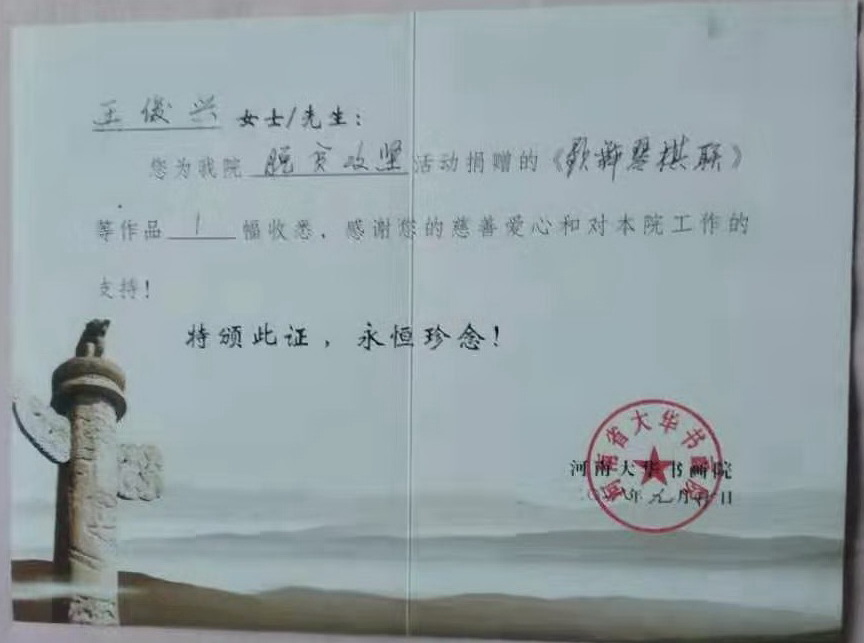 王俊兴 女士/先生:
您为我院 脱贫攻坚 活动捐赠的《琴棋联》
等作品 1 幅收悉，感谢您的慈善爱心和对本院工作的
支持!
特颁此证，永恒珍念!
河南省大华书画院
河南大华书画院
八年元月 日